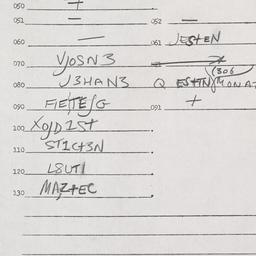 050 +
051 — 052 —
060 — 061 JESTEN
070 VJOSN3
(306
080 J3HAN3 Q ESTTN MONAT
090 FIETESG 091 +
100 XOJD1ST
110 ST1CT3N
120 L8UT1
130 MAZTEC